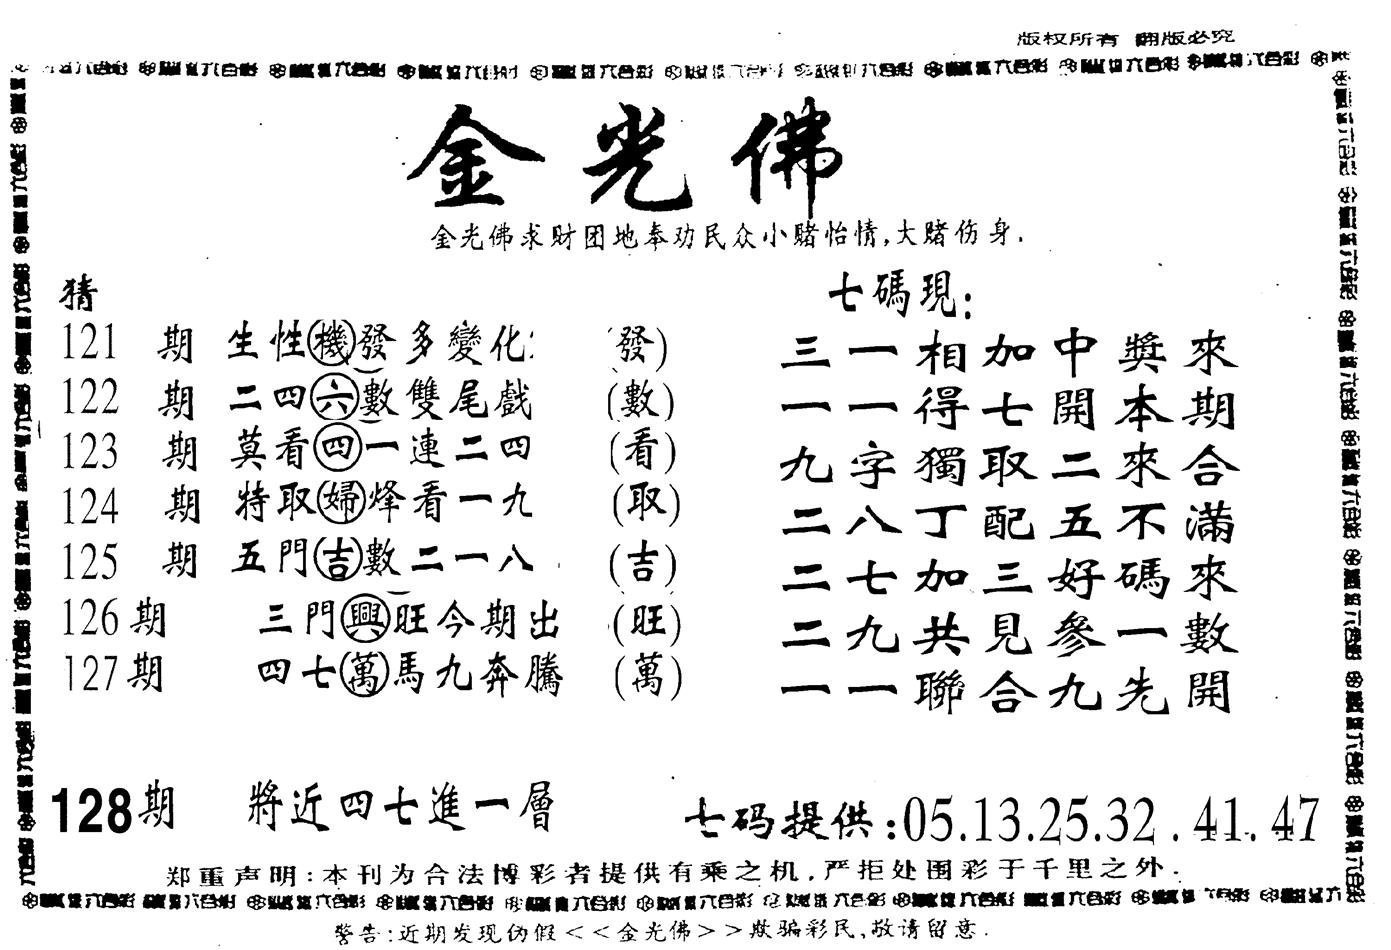 版权所有 翻版必究
金光佛
金光佛求财团地奉劝民众小赌怡情,大赌伤身.
猜
121 期 生性機發多變化 (發)
122 期 二四六數雙尾戲 (數)
123 期 莫看四一連二四 (看)
124 期 特取婦烽看一九 (取)
125 期 五門吉數二一八 (吉)
126期 三門興旺今期出 (旺)
127期 四七萬馬九奔騰 (萬)
七碼現:
三一相加中獎來
一一得七開本期
九字獨取二來合
二八丁配五不滿
二七加三好碼來
二九共見參一數
一一聯合九先開
128期 將近四七進一層
七码提供:05.13.25.32.41.47
郑重声明:本刊为合法博彩者提供有乘之机,严拒处圈彩于千里之外.
警告:近期发现伪假<<金光佛>>欺骗彩民,敬请留意.